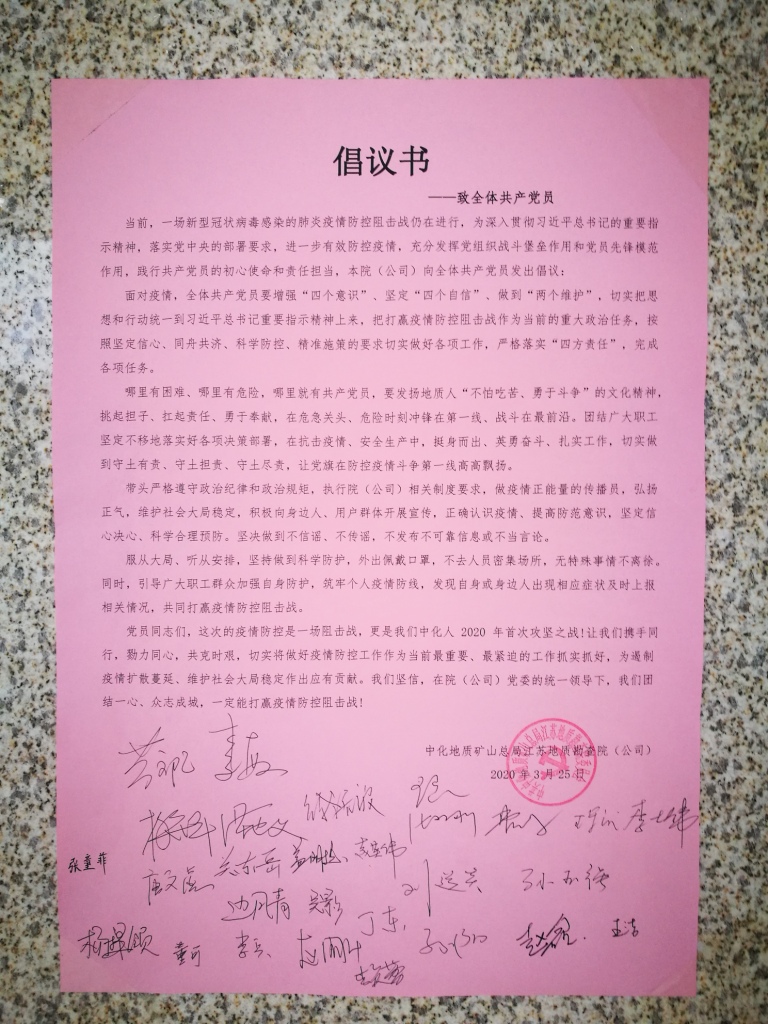 倡议书
——致全体共产党员
当前，一场新型冠状病毒感染的肺炎疫情防控阻击战仍在进行，为深入贯彻习近平总书记的重要指
示精神，落实党中央的部署要求，进一步有效防控疫情，充分发挥党组织战斗堡垒作用和党员先锋模范
作用，践行共产党员的初心使命和责任担当，本院（公司）向全体共产党员发出倡议：
面对疫情，全体共产党员要增强“四个意识”、坚定“四个自信”、做到“两个维护”，切实把思
想和行动统一到习近平总书记重要指示精神上来，把打赢疫情防控阻击战作为当前的重大政治任务，按
照坚定信心、同舟共济、科学防控、精准施策的要求切实做好各项工作，严格落实“四方责任”，完成
各项任务。
哪里有困难、哪里有危险，哪里就有共产党员，要发扬地质人“不怕吃苦、勇于斗争”的文化精神，
挑起担子、扛起责任、勇于奉献，在危急关头、危险时刻冲锋在第一线、战斗在最前沿。团结广大职工
坚定不移地落实好各项决策部署，在抗击疫情、安全生产中，挺身而出、英勇奋斗、扎实工作，切实做
到守土有责、守土担责、守土尽责，让党旗在防控疫情斗争第一线高高飘扬。
带头严格遵守政治纪律和政治规矩，执行院（公司）相关制度要求，做疫情正能量的传播员，弘扬
正气，维护社会大局稳定，积极向身边人、用户群体开展宣传，正确认识疫情、提高防范意识，坚定信
心决心、科学合理预防。坚决做到不信谣、不传谣，不发布不可靠信息或不当言论。
服从大局、听从安排，坚持做到科学防护，外出佩戴口罩，不去人员密集场所，无特殊事情不离徐。
同时，引导广大职工群众加强自身防护，筑牢个人疫情防线，发现自身或身边人出现相应症状及时上报
相关情况，共同打赢疫情防控阻击战。
党员同志们，这次的疫情防控是一场阻击战，更是我们中化人 2020 年首次攻坚之战！让我们携手同
行，勠力同心，共克时艰，切实将做好疫情防控工作作为当前最重要、最紧迫的工作抓实抓好，为遏制
疫情扩散蔓延、维护社会大局稳定作出应有贡献。我们坚信，在院（公司）党委的统一领导下，我们团
结一心、众志成城，一定能打赢疫情防控阻击战！
中化地质矿山总局江苏地质勘查院（公司）
2020 年 3 月 25 日
张童菲
边凤青 吴影 丁东
董可 李兵 赵鑫 王洁